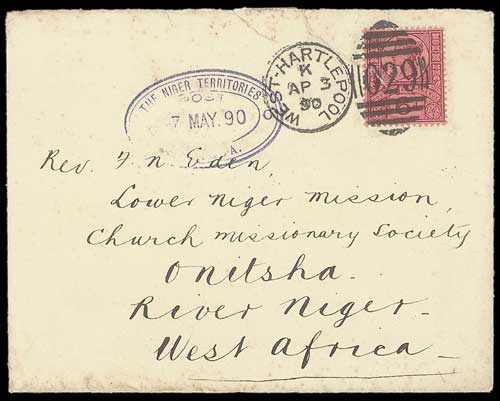 THE NIGER TERRITORIES
POST
7 MAY. 90
WEST-HARTLEPOOL
K
AP 3
90
029
Rev. F N Eden,
Lower Niger Mission,
Church Missionary Society
Onitsha.
River Niger.
West Africa